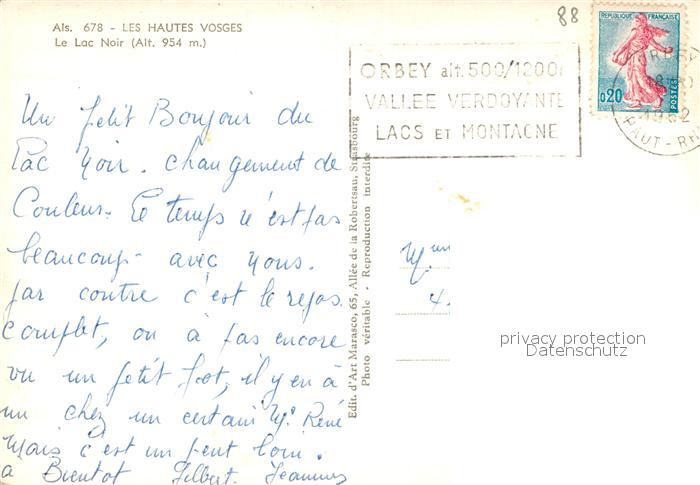 88
Als. 678 - LES HAUTES VOSGES
Le Lac Noir (Alt. 954 m.)
REPUBLIQUE FRANÇAISE
0,20
POSTES
ORBEY
18
1962
HAUT-RH
ORBEY alt. 500/1200
VALLEE VERDOYANTE
LACS ET MONTAGNE
Un petit Bonjour du
Lac Noir. Changement de
Couleur. Le temps n'est pas
beaucoup avec nous.
par contre c'est le repos
complet, on à pas encore
vu un petit pot, il y en à
un chez un certain Mr René
Mais c'est un peut loin.
a Bientot Gilbert. Jeannes
Edit. d'Art Marasco, 65, Allée de la Robertsau, Strasbourg
Photo véritable - Reproduction interdite
4.
privacy protection
Datenschutz